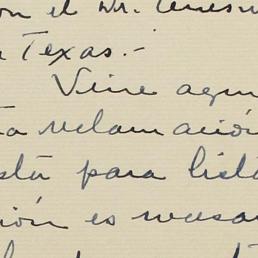 on el Dr.
Texas.-
Vine aqui
ta reclamación
sta para list
ión es necesa